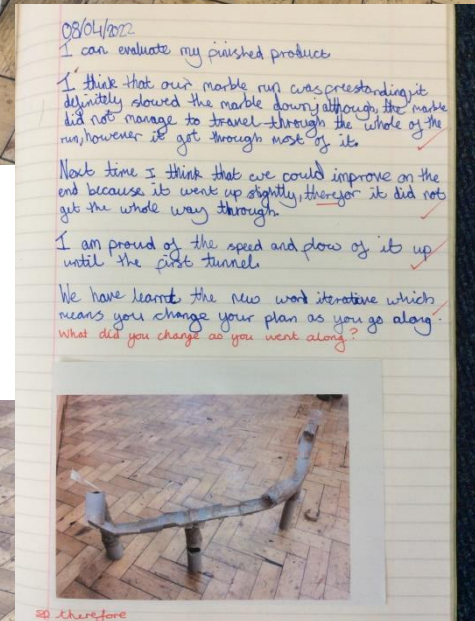 08/04/2022
I can evaluate my finished product
I think that our marble run was freestanding, it
definitely slowed the marble down; although, the marble
did not manage to travel through the whole of the
run, however it got through most of it.
Next time I think that we could improve on the
end because it went up slightly, therefor it did not
get the whole way through.
I am proud of the speed and flow of it up
until the first tunnel.
We have learnt the new word iterative which
means you change your plan as you go along.
What did you change as you went along?
sp therefore